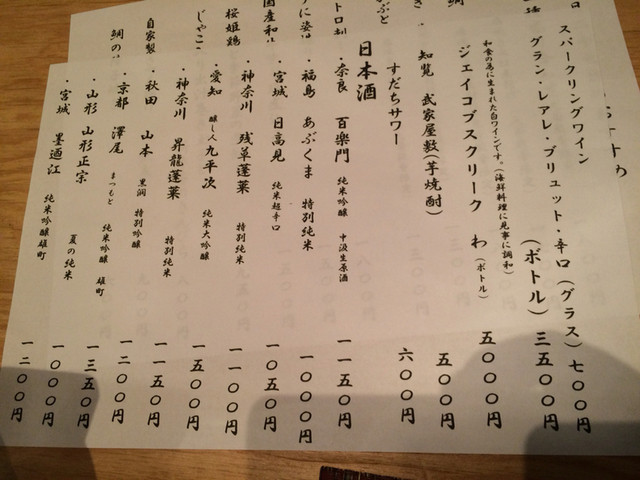 スパークリングワイン
グラン・レアレ・ブリュット・辛口(グラス) 七〇〇円
(ボトル) 三五〇〇円
和食の為に生まれた白ワインです。(海鮮料理に見事に調和)
ジェイコブスクリーク わ(ボトル) 五〇〇〇円
知覧 武家屋敷(芋焼酎) 五〇〇円
すだちサワー 六〇〇円
日本酒
・奈良 百楽門 純米吟醸 中汲生原酒 一一五〇円
・福島 あぶくま 特別純米 一〇〇〇円
・宮城 日高見 純米超辛口 一〇五〇円
・神奈川 残草蓬莱 特別純米 一一〇〇円
・愛知 醸し人九平次 純米大吟醸 一五〇〇円
・神奈川 昇龍蓬莱 特別純米 一一五〇円
・秋田 山本 黒潤 特別吟醸 一二〇〇円
・京都 澤屋 まつもと 純米吟醸 雄町 一三五〇円
・山形 山形正宗 夏の純米 一〇〇〇円
・宮城 墨廼江 純米吟醸雄町 一二〇〇円
国産和
桜姫鶏
じゃこ
自家製
鯛の